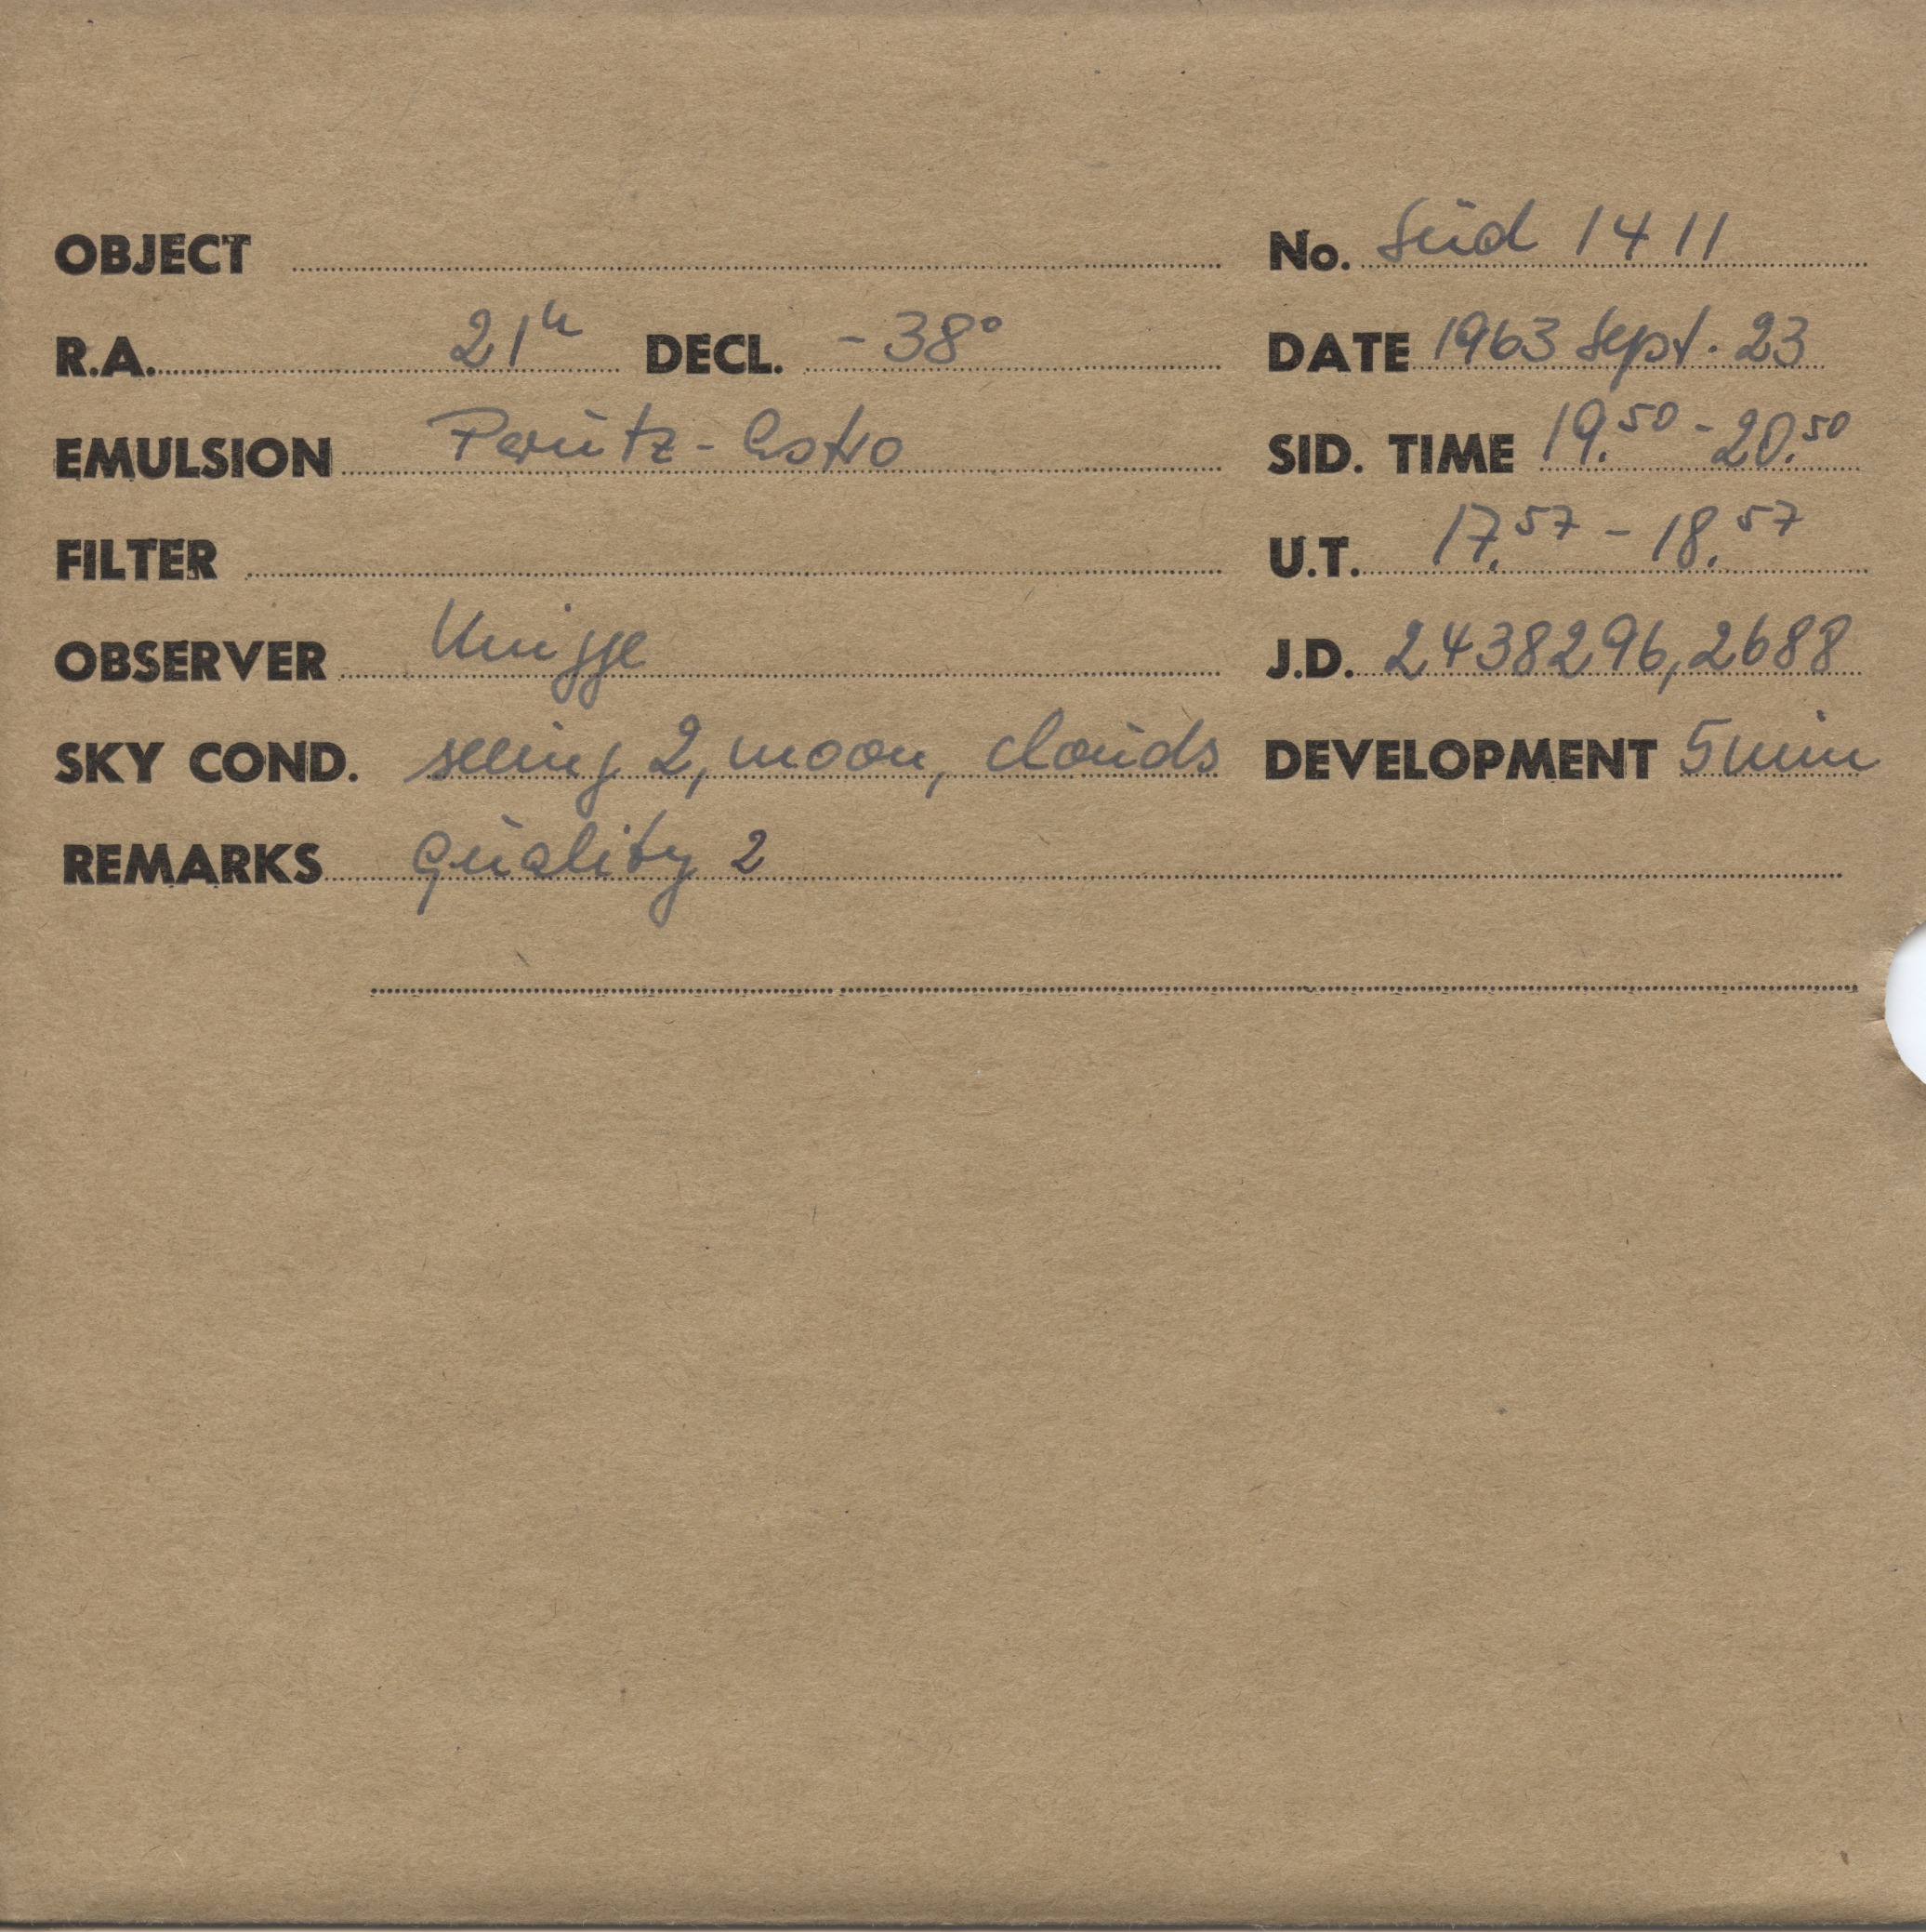 OBJECT No. Süd 1411
R.A. 21h DECL. -38° DATE 1963 Sept. 23
EMULSION Perutz-Astro SID. TIME 19.50 - 20.50
FILTER U.T. 17.57 - 18.57
OBSERVER Knigge J.D. 2438296,2688
SKY COND. seeing 2, moon, clouds DEVELOPMENT 5 min
REMARKS Quality 2